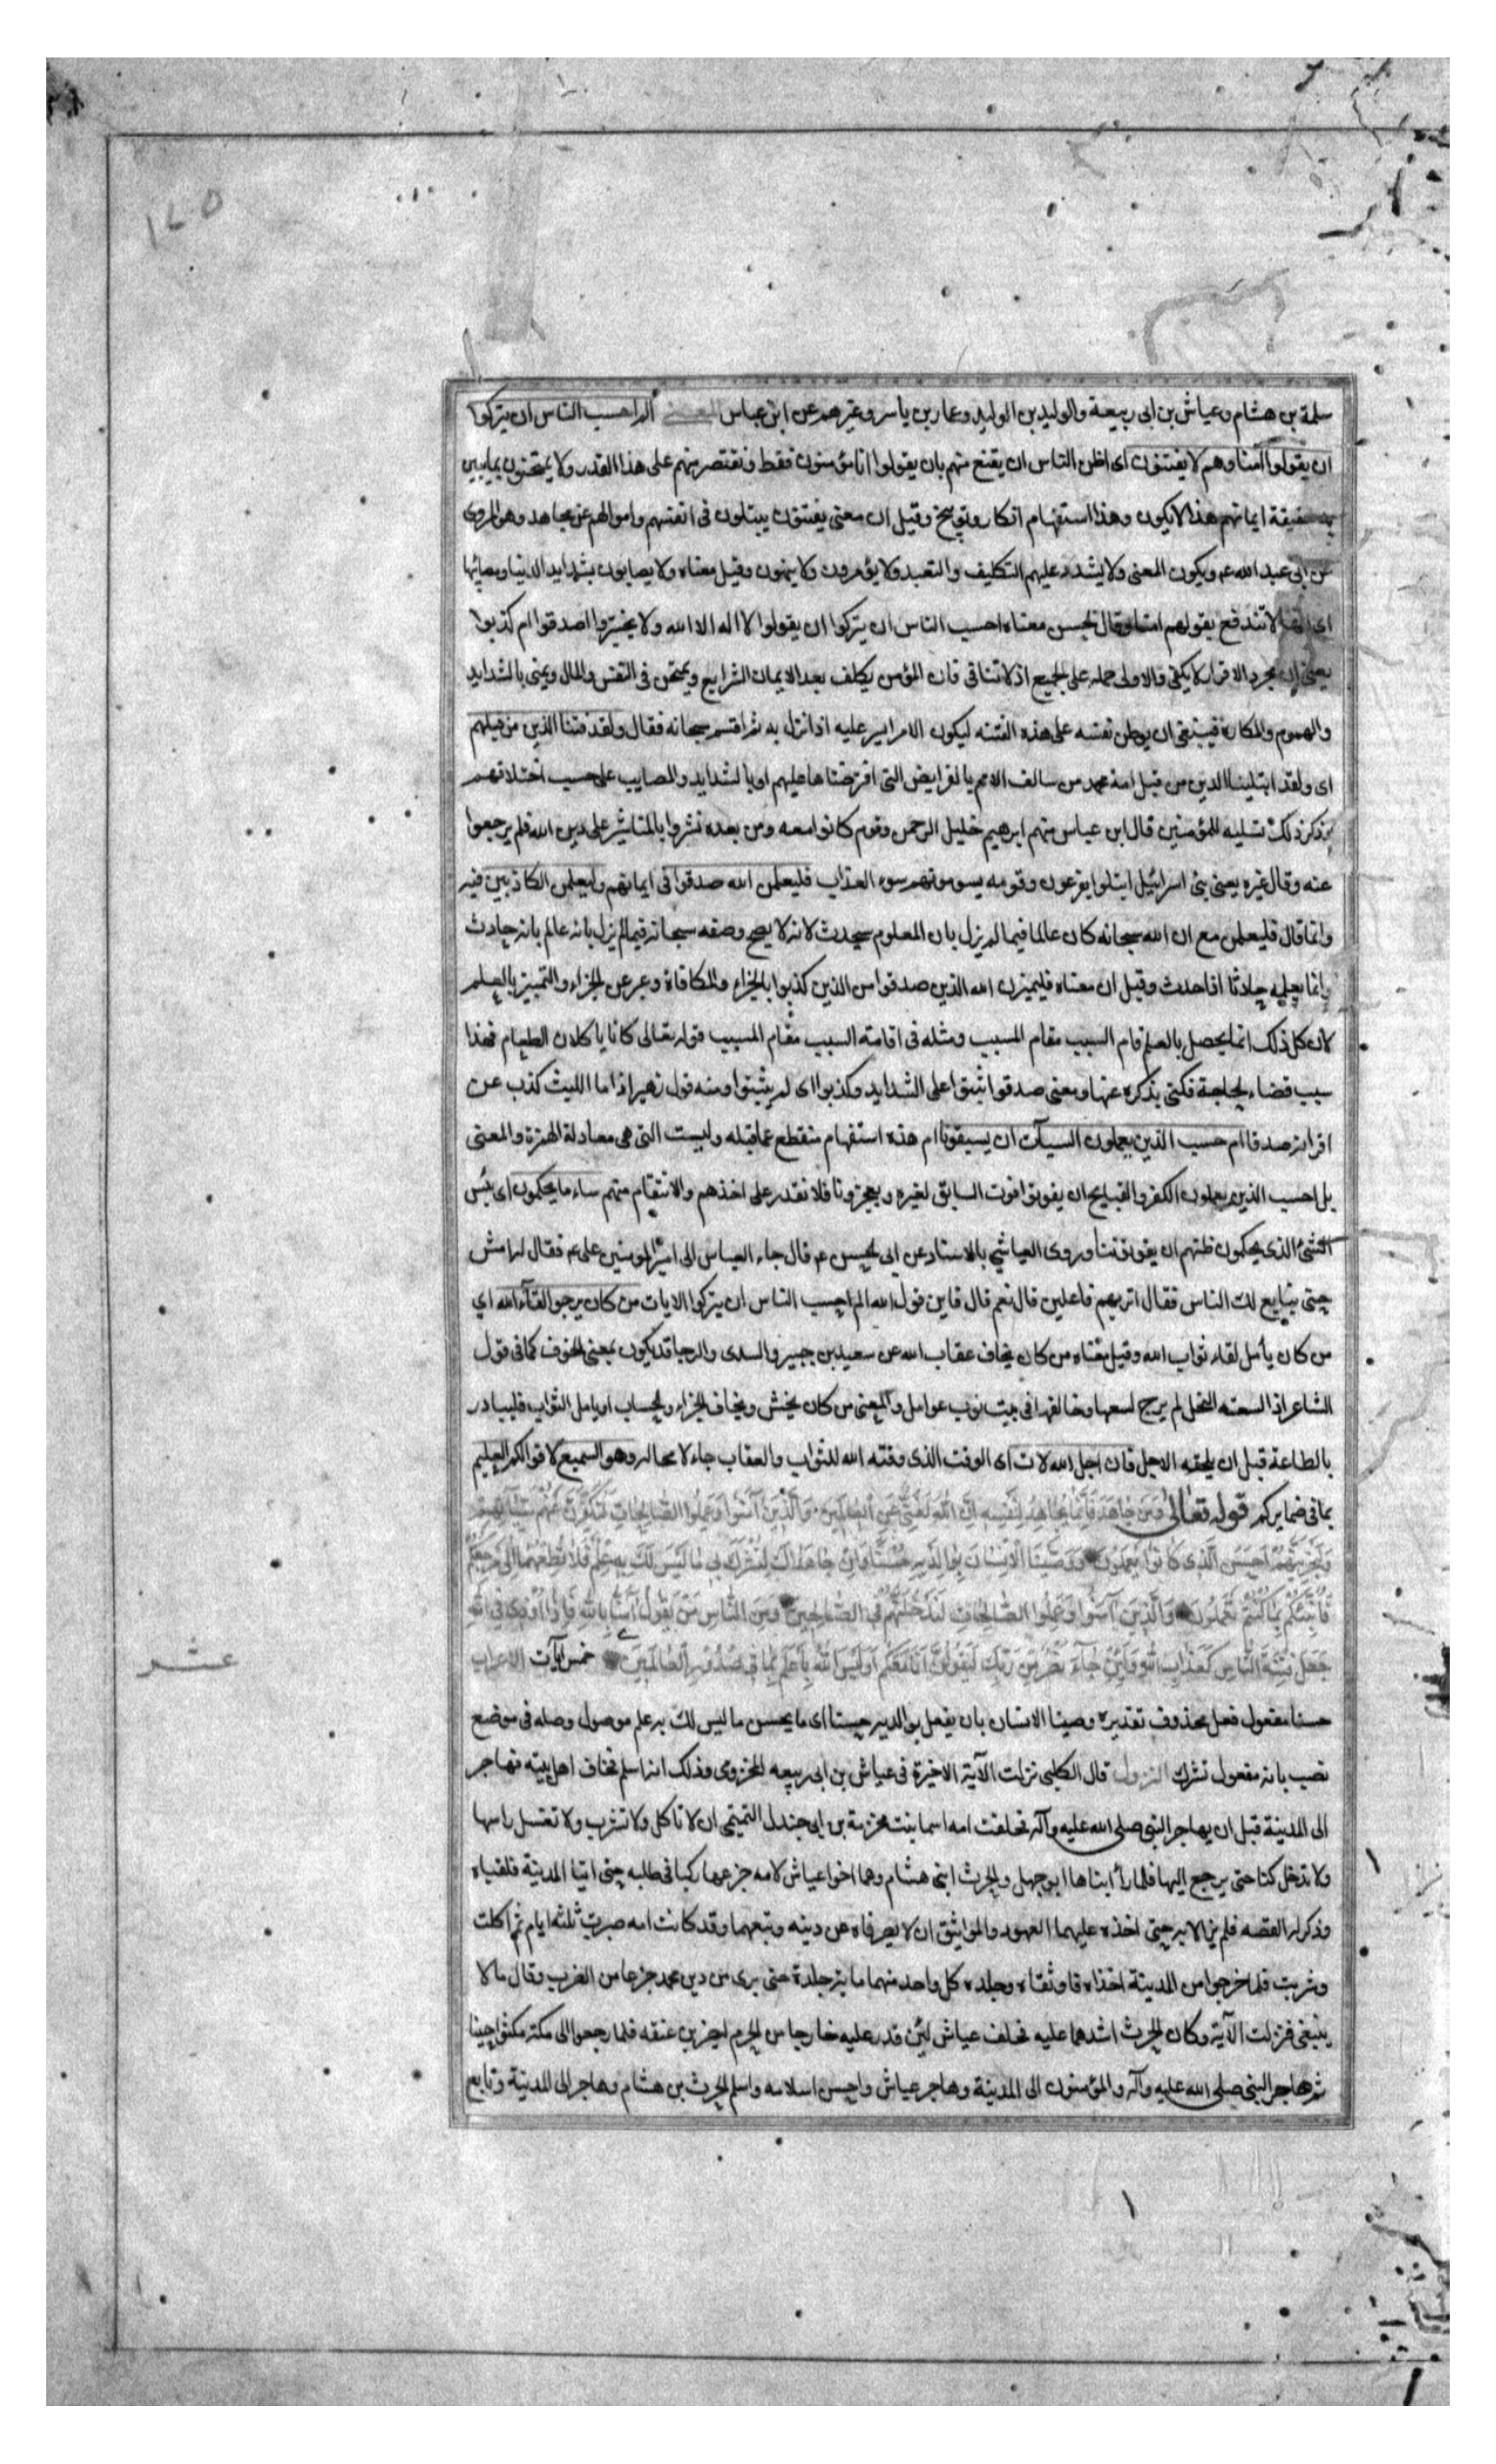 ١٢٥
سلمة بن هشام وعياش بن ابى ربيعة والوليد بن الوليد وعمار بن ياسر وغيرهم عن ابن عباس المعنى الم احسب الناس ان يتركوا
ان يقولوا آمنا وهم لا يفتنون اى اظن الناس ان يقنع منهم بان يقولوا انا مؤمنون فقط ونقتصر منهم على هذا القدر ولا يمتحنون بما يبين
به حقيقة ايمانهم هذا لا يكون وهذا استفهام انكار وتوبيخ وقيل ان معنى يفتنون يبتلون فى انفسهم واموالهم عن مجاهد وهو المروى
عن ابى عبد الله عم ويكون المعنى ولا يشدد عليهم التكليف والتعبد ولا يؤمرون ولا ينهون وقيل معناه ولا يصابون بشدايد الدنيا ومصائبها
اى انها لا تندفع بقولهم امنا وقال الحسن معناه احسب الناس ان يتركوا ان يقولوا لا اله الا الله ولا يختبروا اصدقوا ام كذبوا
يعنى ان مجرد الاقرار لا يكفى والاولى حمله على الجميع اذ لا تنافى فان المؤمن يكلف بعد الايمان الشرايع ويمتحن فى النفس والمال ويمنى بالشدايد
والهموم والمكاره فينبغى ان يوطن نفسه على هذه الفتنه ليكون الامر ايسر عليه اذا نزل به ثم اقسم سبحانه فقال ولقد فتنا الذين من قبلهم
اى ولقد ابتلينا الذين من قبل امة محمد من سالف الامم بالفرايض التى افترضناها عليهم او بالشدايد والمصايب على حسب اختلافهم
وذكر ذلك تسليه للمؤمنين قال ابن عباس منهم ابرهيم خليل الرحمن وقوم كانوا معه ومن بعده نشروا بالمناشير على دين الله فلم يرجعوا
عنه وقال غيره يعنى بنى اسرائيل ابتلوا بفرعون وقومه يسومونهم سوء العذاب فليعلمن الله صدقوا فى ايمانهم وليعلمن الكاذبين فيه
وانما قال فليعلمن مع ان الله سبحانه كان عالما فيما لم يزل بان المعلوم سيحدث لانه لا يصح وصفه سبحانه فيما لم يزل بانه عالم بانه حادث
وانما يعلمه حادثا اذا حدث وقيل ان معناه فليميزن الله الذين صدقوا من الذين كذبوا بالجزاء والمكافاة وعبر عن الجزاء والتمييز بالعلم
لان كل ذلك انما يحصل بالعلم قام السبب مقام المسبب ومثله فى اقامة السبب مقام المسبب قوله تعالى كانا ياكلان الطعام فهذا
سبب قضاء الحاجة فكنى بذكره عنها ومعنى صدقوا ثبتوا على الشدايد وكذبوا اى لم يثبتوا ومنه قول زهير اذا ما الليث كذب عن
اقرانه صدقا ام حسب الذين يعملون السيآت ان يسبقونا ام هذه استفهام منقطع عما قبله وليست التى هى معادلة الهمزة والمعنى
بل احسب الذين يعملون الكفر والقبايح ان يفوتوا فوت السابق لغيره ويعجزونا فلا نقدر على اخذهم والانتقام منهم ساء ما يحكمون اى بئس
الشئ الذى يحكمون ظنهم ان يفوتوننا وروى العياشى بالاسناد عن ابى الحسن عم قال جاء العباس الى امير المومنين على عم فقال له امش
حتى يبايع لك الناس فقال اتريهم فاعلين قال نعم قال فاين قول الله الم احسب الناس ان يتركوا الايات من كان يرجو لقآء الله اي
من كان يأمل لقاء ثواب الله وقيل معناه من كان يخاف عقاب الله عن سعيد بن جبير والسدى والرجا قد يكون بمعنى الخوف كما فى قول
الشاعر اذا لسعته النحل لم يرج لسعها وخالفها فى بيت نوب عوامل والمعنى من كان يخش ويخاف الجزاء والحساب او يامل الثواب فليبادر
بالطاعة قبل ان يلحقه الاجل فان اجل الله لات اى الوقت الذى وقته الله للثواب والعقاب جاء لا محالة وهو السميع لاقوالكم العليم
بما فى ضمايركم قوله تعالى وَمَن جَاهَدَ فَاِنَّمَا يُجَاهِدُ لِنَفْسِهِ اِنَّ اللهَ لَغَنِىٌّ عَنِ الْعَالَمِينَ وَالَّذِينَ آمَنُوا وَعَمِلُوا الصَّالِحَاتِ لَنُكَفِّرَنَّ عَنْهُمْ سَيِّآتِهِمْ
وَلَنَجْزِيَنَّهُمْ اَحْسَنَ الَّذِى كَانُوا يَعْمَلُونَ وَوَصَّيْنَا الْاِنْسَانَ بِوَالِدَيْهِ حُسْنًا وَاِنْ جَاهَدَاكَ لِتُشْرِكَ بِى مَا لَيْسَ لَكَ بِهِ عِلْمٌ فَلَا تُطِعْهُمَا اِلَىَّ مَرْجِعُكُمْ
فَاُنَبِّئُكُمْ بِمَا كُنْتُمْ تَعْمَلُونَ وَالَّذِينَ آمَنُوا وَعَمِلُوا الصَّالِحَاتِ لَنُدْخِلَنَّهُمْ فِى الصَّالِحِينَ وَمِنَ النَّاسِ مَنْ يَقُولُ آمَنَّا بِاللهِ فَاِذَا اُوذِىَ فِى اللهِ
جَعَلَ فِتْنَةَ النَّاسِ كَعَذَابِ اللهِ وَلَئِنْ جَآءَ نَصْرٌ مِنْ رَبِّكَ لَيَقُولُنَّ اِنَّا كُنَّا مَعَكُمْ اَوَلَيْسَ اللهُ بِاَعْلَمَ بِمَا فِى صُدُورِ الْعَالَمِينَ خمس آيات الاعراب
عشر
حسنا مفعول فعل محذوف تقديره وصينا الانسان بان يفعل بوالديه حسنا اى ما يحسن ما ليس لك به علم موصول وصله فى موضع
نصب بانه مفعول تشرك النزول قال الكلبى نزلت الآية الاخيرة فى عياش بن ابى ربيعه المخزومى وذلك انه اسلم فخاف اهل بيته فهاجر
الى المدينة قبل ان يهاجر النبى صلى الله عليه وآله فحلفت امه اسما بنت مخزمة بن ابى جندل التميمى ان لا تاكل ولا تشرب ولا تغسل راسها
ولا تدخل كنا حتى يرجع اليها فلما رأ ابناها ابو جهل والحرث ابنى هشام وهما اخوا عياش لامه جزعها ركبا فى طلبه حتى اتيا المدينة فلقياه
وذكرا له القصه فلم يزالا به حتى اخذه عليهما العهود والمواثيق ان لا يصرفاه عن دينه وتبعهما وقد كانت امه صبرت ثلثه ايام ثم اكلت
وشربت فلما خرجوا من المدينة اخذاه فاوثقاه وجلده كل واحد منهما ماية جلدة حتى برى من دين محمد جزعا من الضرب وقال ما لا
ينبغى فنزلت الآية وكان الحرث اشدهما عليه فحلف عياش لئن قدر عليه خارجا من الحرم ليضربن عنقه فلما رجعوا الى مكة مكثوا حينا
ثم هاجر النبى صلى الله عليه وآله والمؤمنون الى المدينة وهاجر عياش واحسن اسلامه واسلم الحرث بن هشام وهاجر الى المدينة وبايع